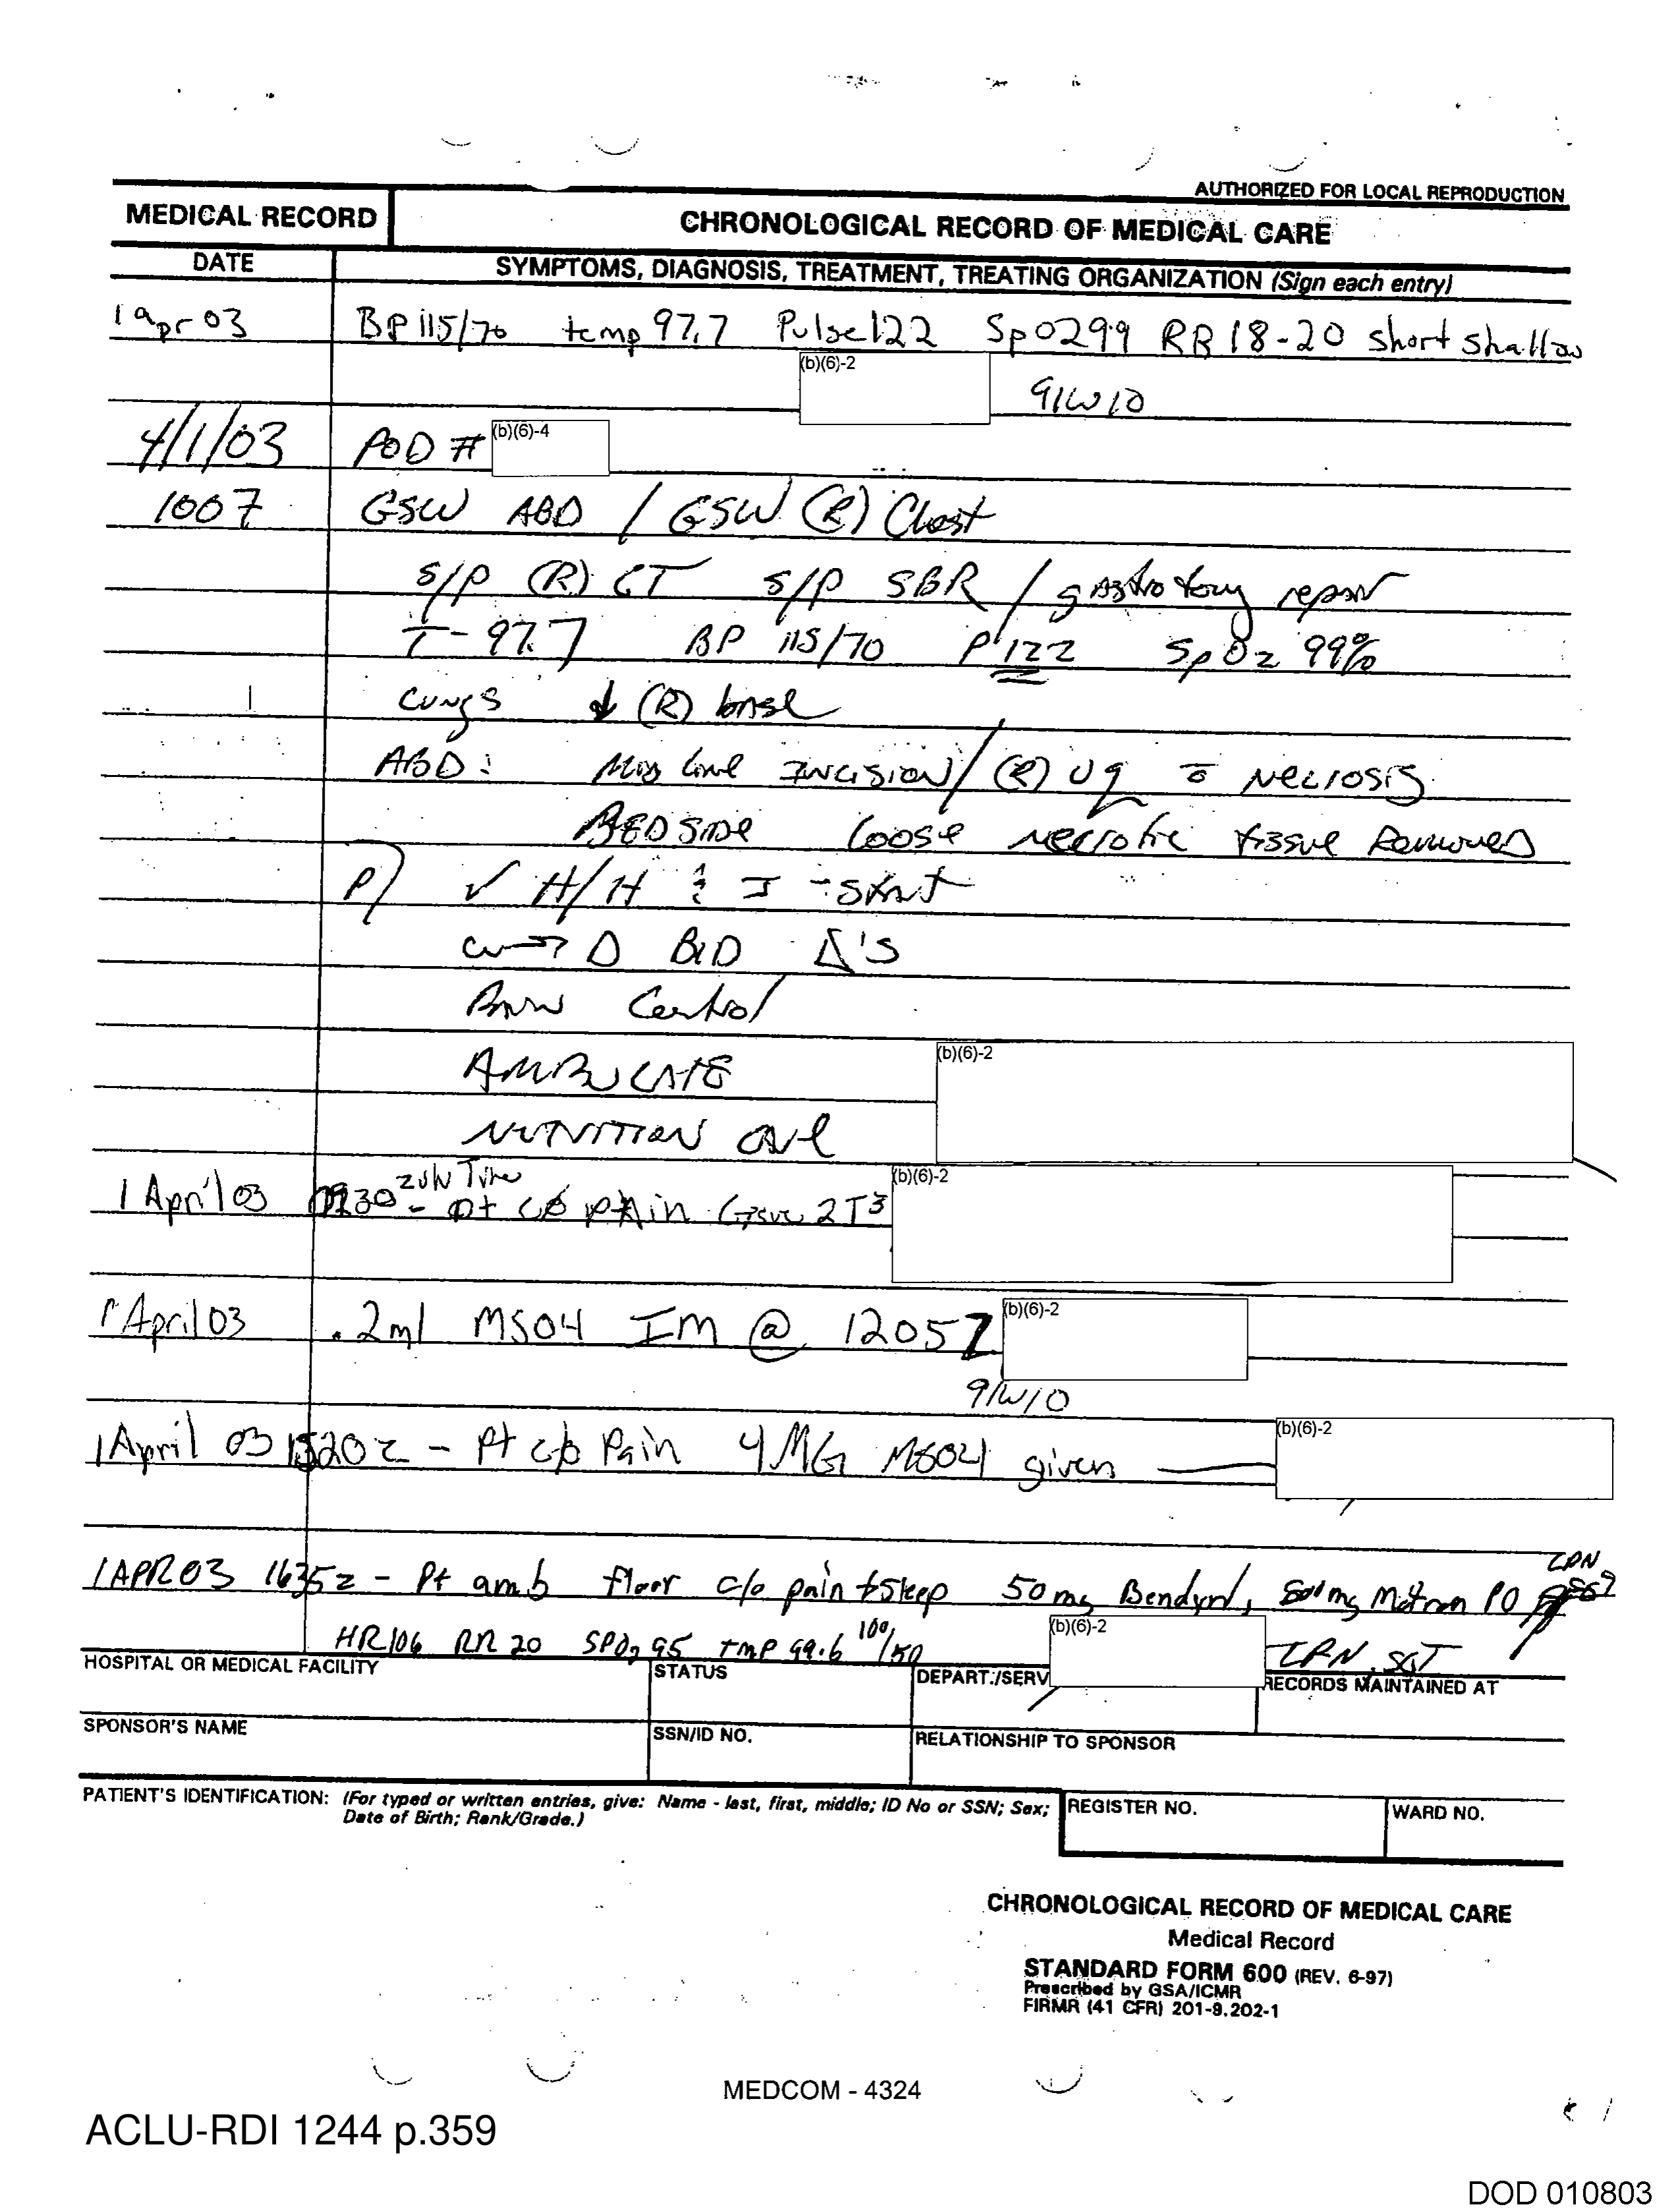 AUTHORIZED FOR LOCAL REPRODUCTION
MEDICAL RECORD
CHRONOLOGICAL RECORD OF MEDICAL CARE
DATE
SYMPTOMS, DIAGNOSIS, TREATMENT, TREATING ORGANIZATION (Sign each entry)
1 apr 03 BP 115/70 temp 97.7 Pulse 122 SpO299 RR 18-20 short shallow
(b)(6)-2
91W10
4/1/03 POD # (b)(6)-4
1007 GSW ABD / GSW (R) Chest
s/p (R) CT s/p SBR / gastrotomy repair
T- 97.7 BP 115/70 P 122 SpO2 99%
Lungs ↓ (R) base
ABD: Mid line INCISION / (R) UQ c̄ Necrosis
BEDSIDE loose necrotic tissue Removed
P) ✓ H/H - Start
D BID Δ'S
Pain Control
AMBULATE
(b)(6)-2
NUTRITION
1 April 03 0930 zulu Time - pt c/o pain Gave 2 T3 (b)(6)-2
1 April 03 .2ml MSO4 IM @ 1205Z (b)(6)-2
91W10
1 April 03 1520z - Pt c/o Pain 4 MG MSO4 given (b)(6)-2
1 APR 03 1635z - Pt amb floor c/o pain + sleep 50 mg Bendyrl, 800 mg Motron PO
HR 106 RR 20 SPO2 95 TMP 99.6 100/50 (b)(6)-2 SGT
HOSPITAL OR MEDICAL FACILITY
STATUS
DEPART./SERV
RECORDS MAINTAINED AT
SPONSOR'S NAME
SSN/ID NO.
RELATIONSHIP TO SPONSOR
PATIENT'S IDENTIFICATION: (For typed or written entries, give: Name - last, first, middle; ID No or SSN; Sex;
Date of Birth; Rank/Grade.)
REGISTER NO.
WARD NO.
CHRONOLOGICAL RECORD OF MEDICAL CARE
Medical Record
STANDARD FORM 600 (REV. 6-97)
Prescribed by GSA/ICMR
FIRMR (41 CFR) 201-9.202-1
MEDCOM - 4324
ACLU-RDI 1244 p.359
DOD 010803